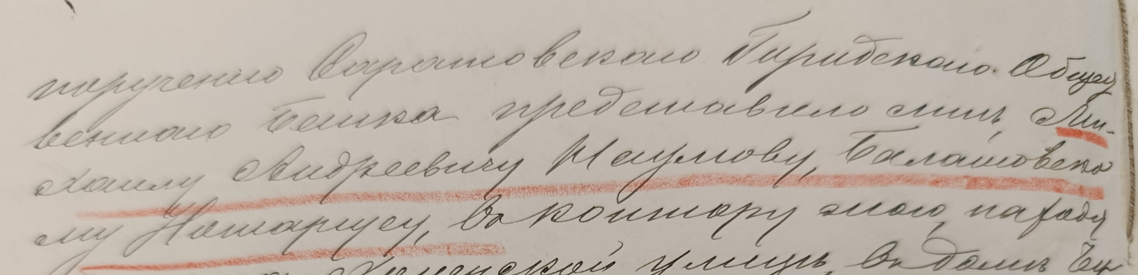 порученію Саратовскаго Городскаго Общест
веннаго Банка представлено мнѣ, Ми-
хаилу Андреевичу Наумову, Балашовско
му Нотаріусу, въ контору мою, находя
Хопенской улицѣ, въ домѣ